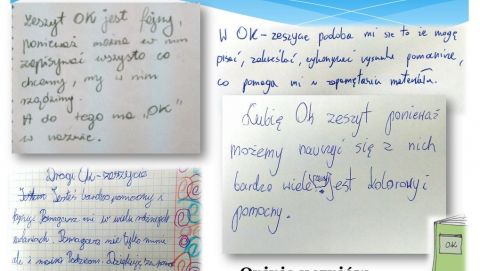 Zeszyt OK jest fajny,
ponieważ można w nim
zapisywać wszysto co
chcemy, my w nim
rządzimy.
A do tego ma "OK"
w nazwie.
W OK-zeszycie podoba mi się to że mogę
pisać, zakreślać, wykonywać rysunki pomocnicze,
co pomaga mi w zapamiętaniu materiału.
Lubię Ok zeszyt ponieważ
możemy nauczyć się z nich
bardzo wiele rzeczy jest kolorowy i
pomocny.
Drogi Ok-zeszycie
Jesteś bardzo pomocny i
Pomagasz mi w wielu różnych
zadaniach. Pomagasz nie tylko mnie
ale i moim Dziękuję za pomoc
OK
Opinie uczniów